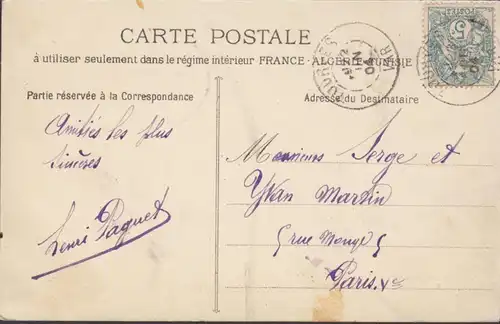 CARTE POSTALE
à utiliser seulement dans le régime intérieur FRANCE - ALGÉRIE - TUNISIE
Partie réservée à la Correspondance
Adresse du Destinataire
Amitiés les plus
sincères
Henri Paquet
Messieurs Serge et
Yvan Martin
(rue Monge)
Paris. Ve
POSTES
5
04